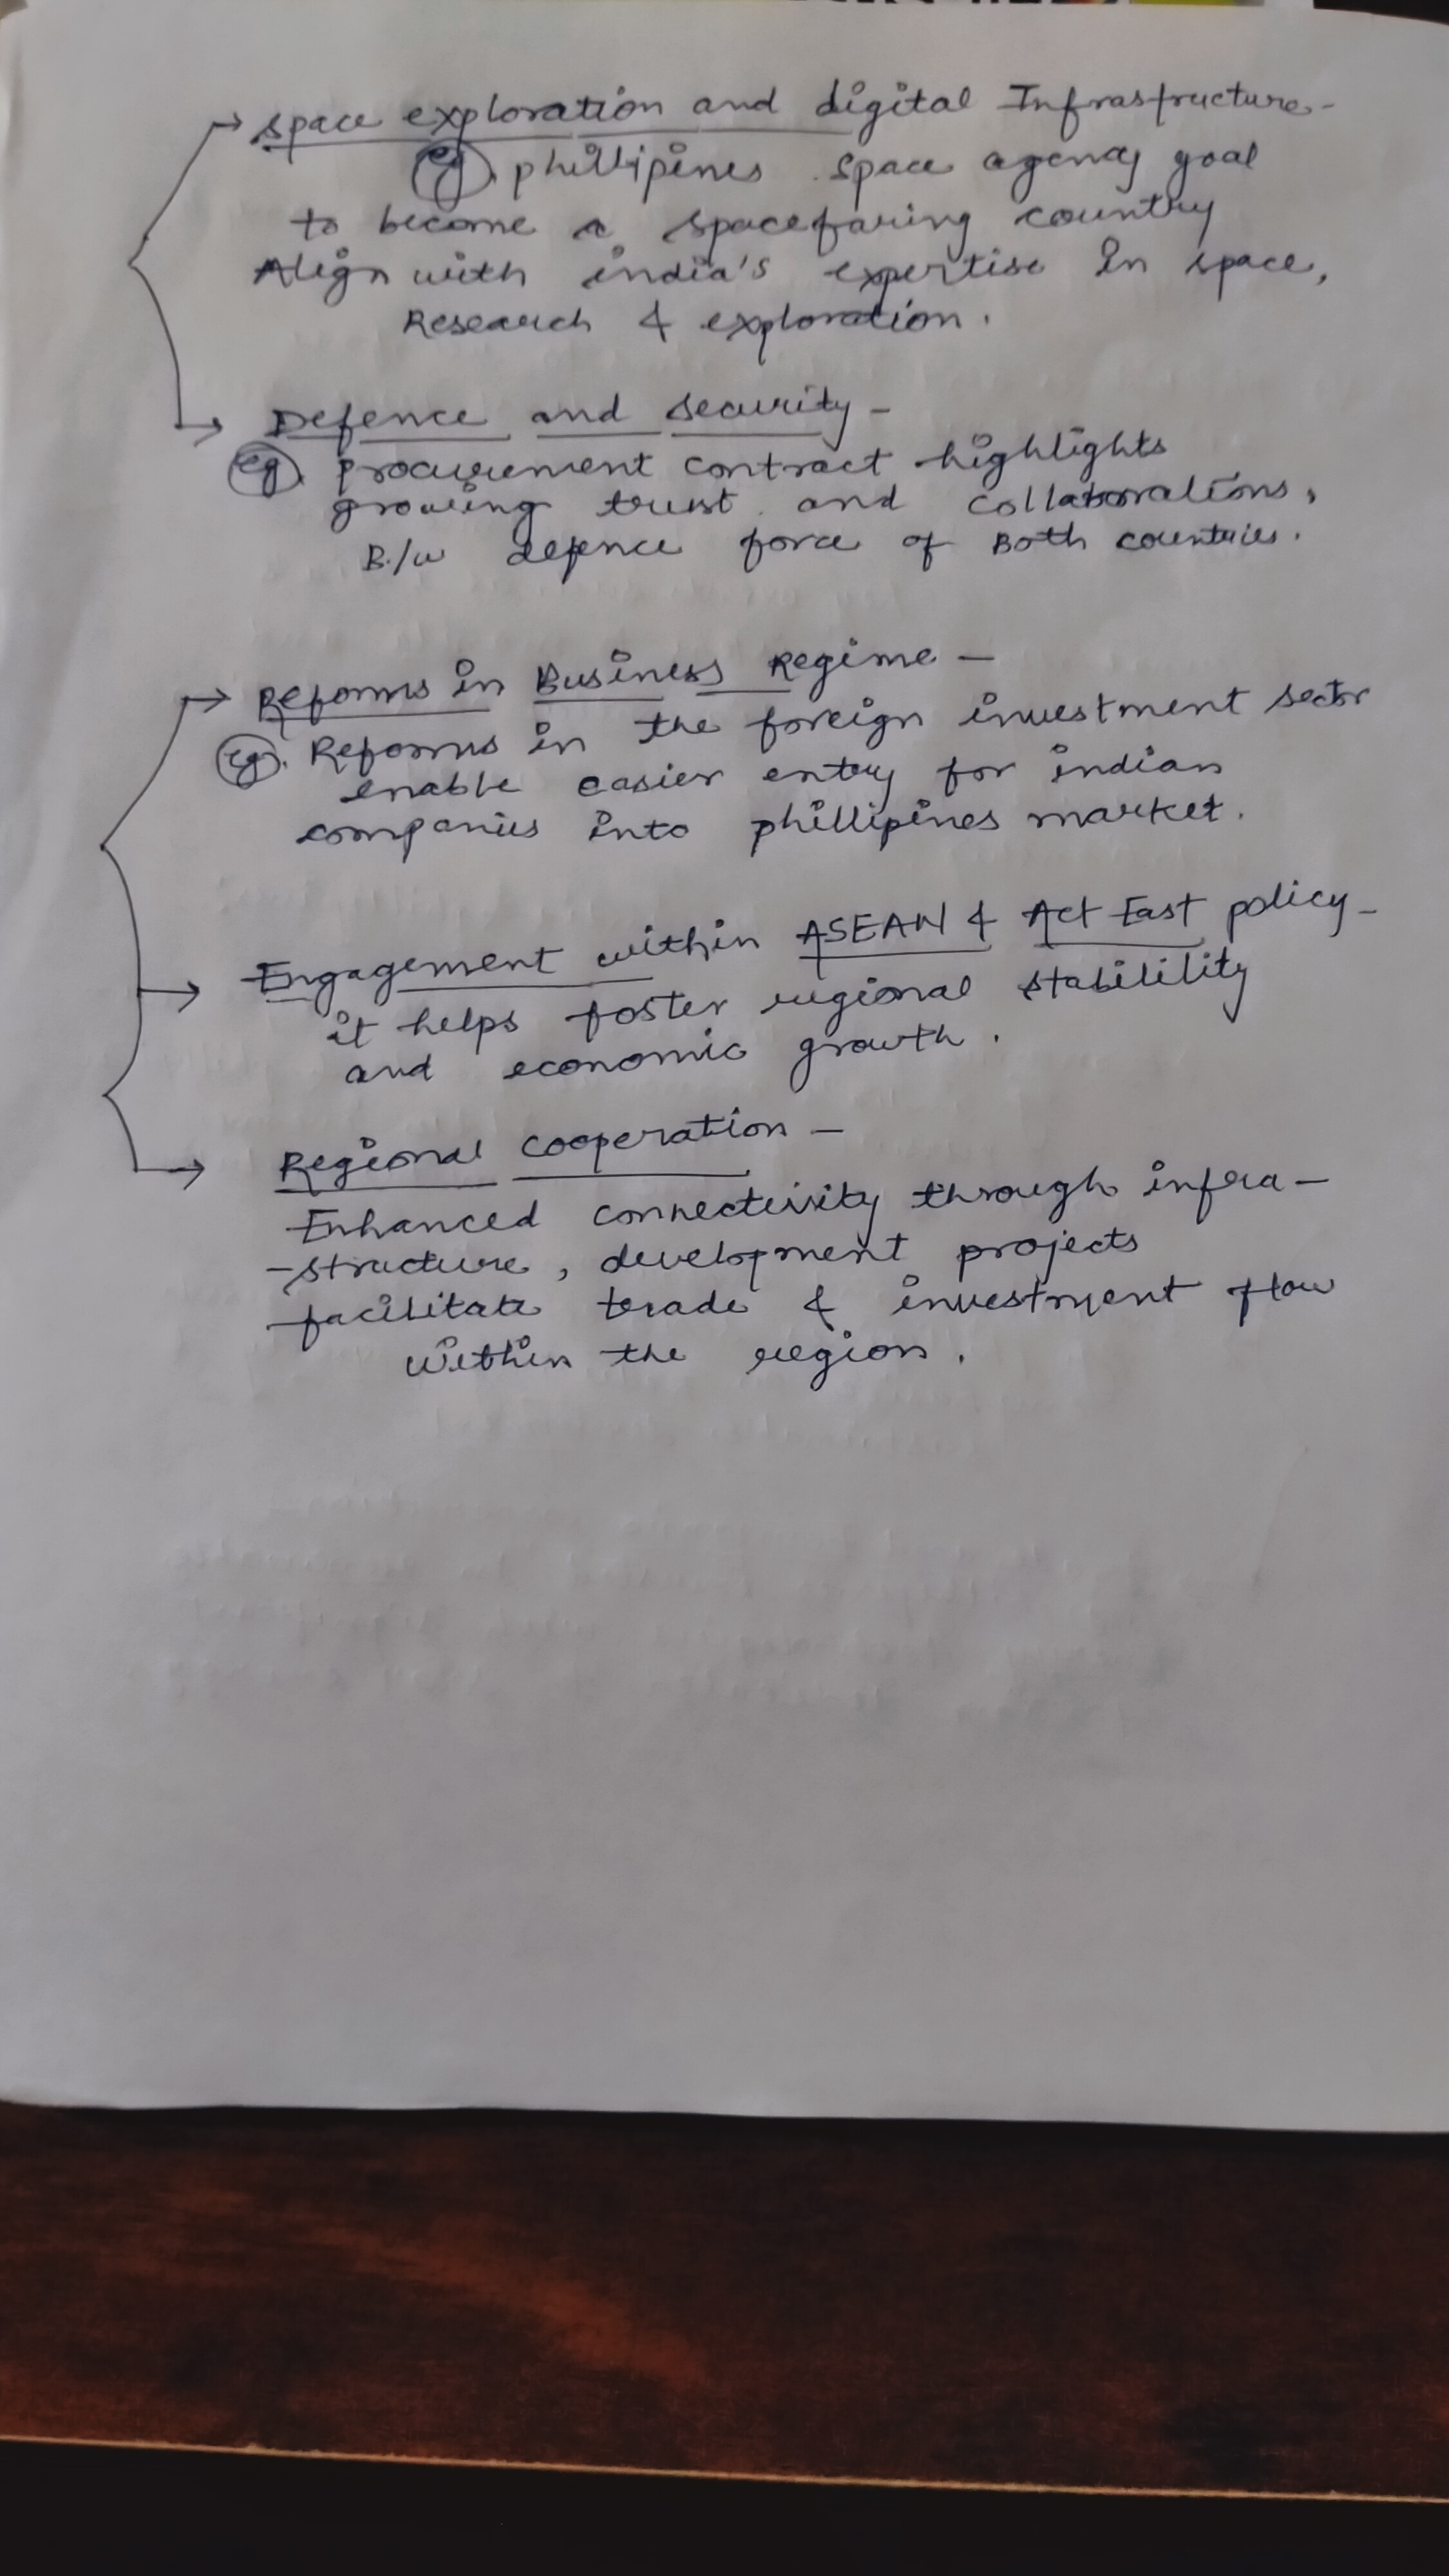 → space exploration and digital Infrastructure -
eg. phillipines space agency goal
to become a spacefaring country
Align with india's expertise in space,
Research & exploration.
→ Defence and security -
eg. procurement contract highlights
growing trust and collaborations,
B/w defence force of Both countries.
→ Reforms in Business Regime -
eg. Reforms in the foreign investment sector
enable easier entry for indian
companies into phillipines market.
→ Engagement within ASEAN & Act East policy -
it helps foster regional stabilility
and economic growth.
→ Regional cooperation -
Enhanced connectivity through infra -
- structure, development projects
facilitate trade & investment flow
within the region.